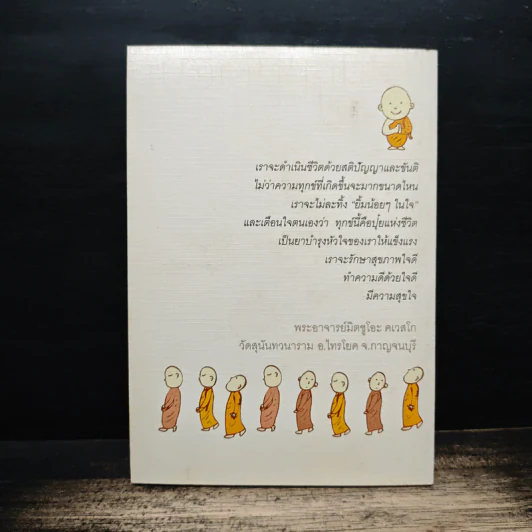 เราจะดำเนินชีวิตด้วยสติปัญญาและขันติ
ไม่ว่าความทุกข์ที่เกิดขึ้นจะมากขนาดไหน
เราจะไม่ละทิ้ง "ยิ้มน้อยๆ ในใจ"
และเตือนใจตนเองว่า ทุกข์นี้คือปุ๋ยแห่งชีวิต
เป็นยาบำรุงหัวใจของเราให้แข็งแรง
เราจะรักษาสุขภาพใจดี
ทำความดีด้วยใจดี
มีความสุขใจ
พระอาจารย์มิตซูโอะ คเวสโก
วัดสุนันทวนาราม อ.ไทรโยค จ.กาญจนบุรี